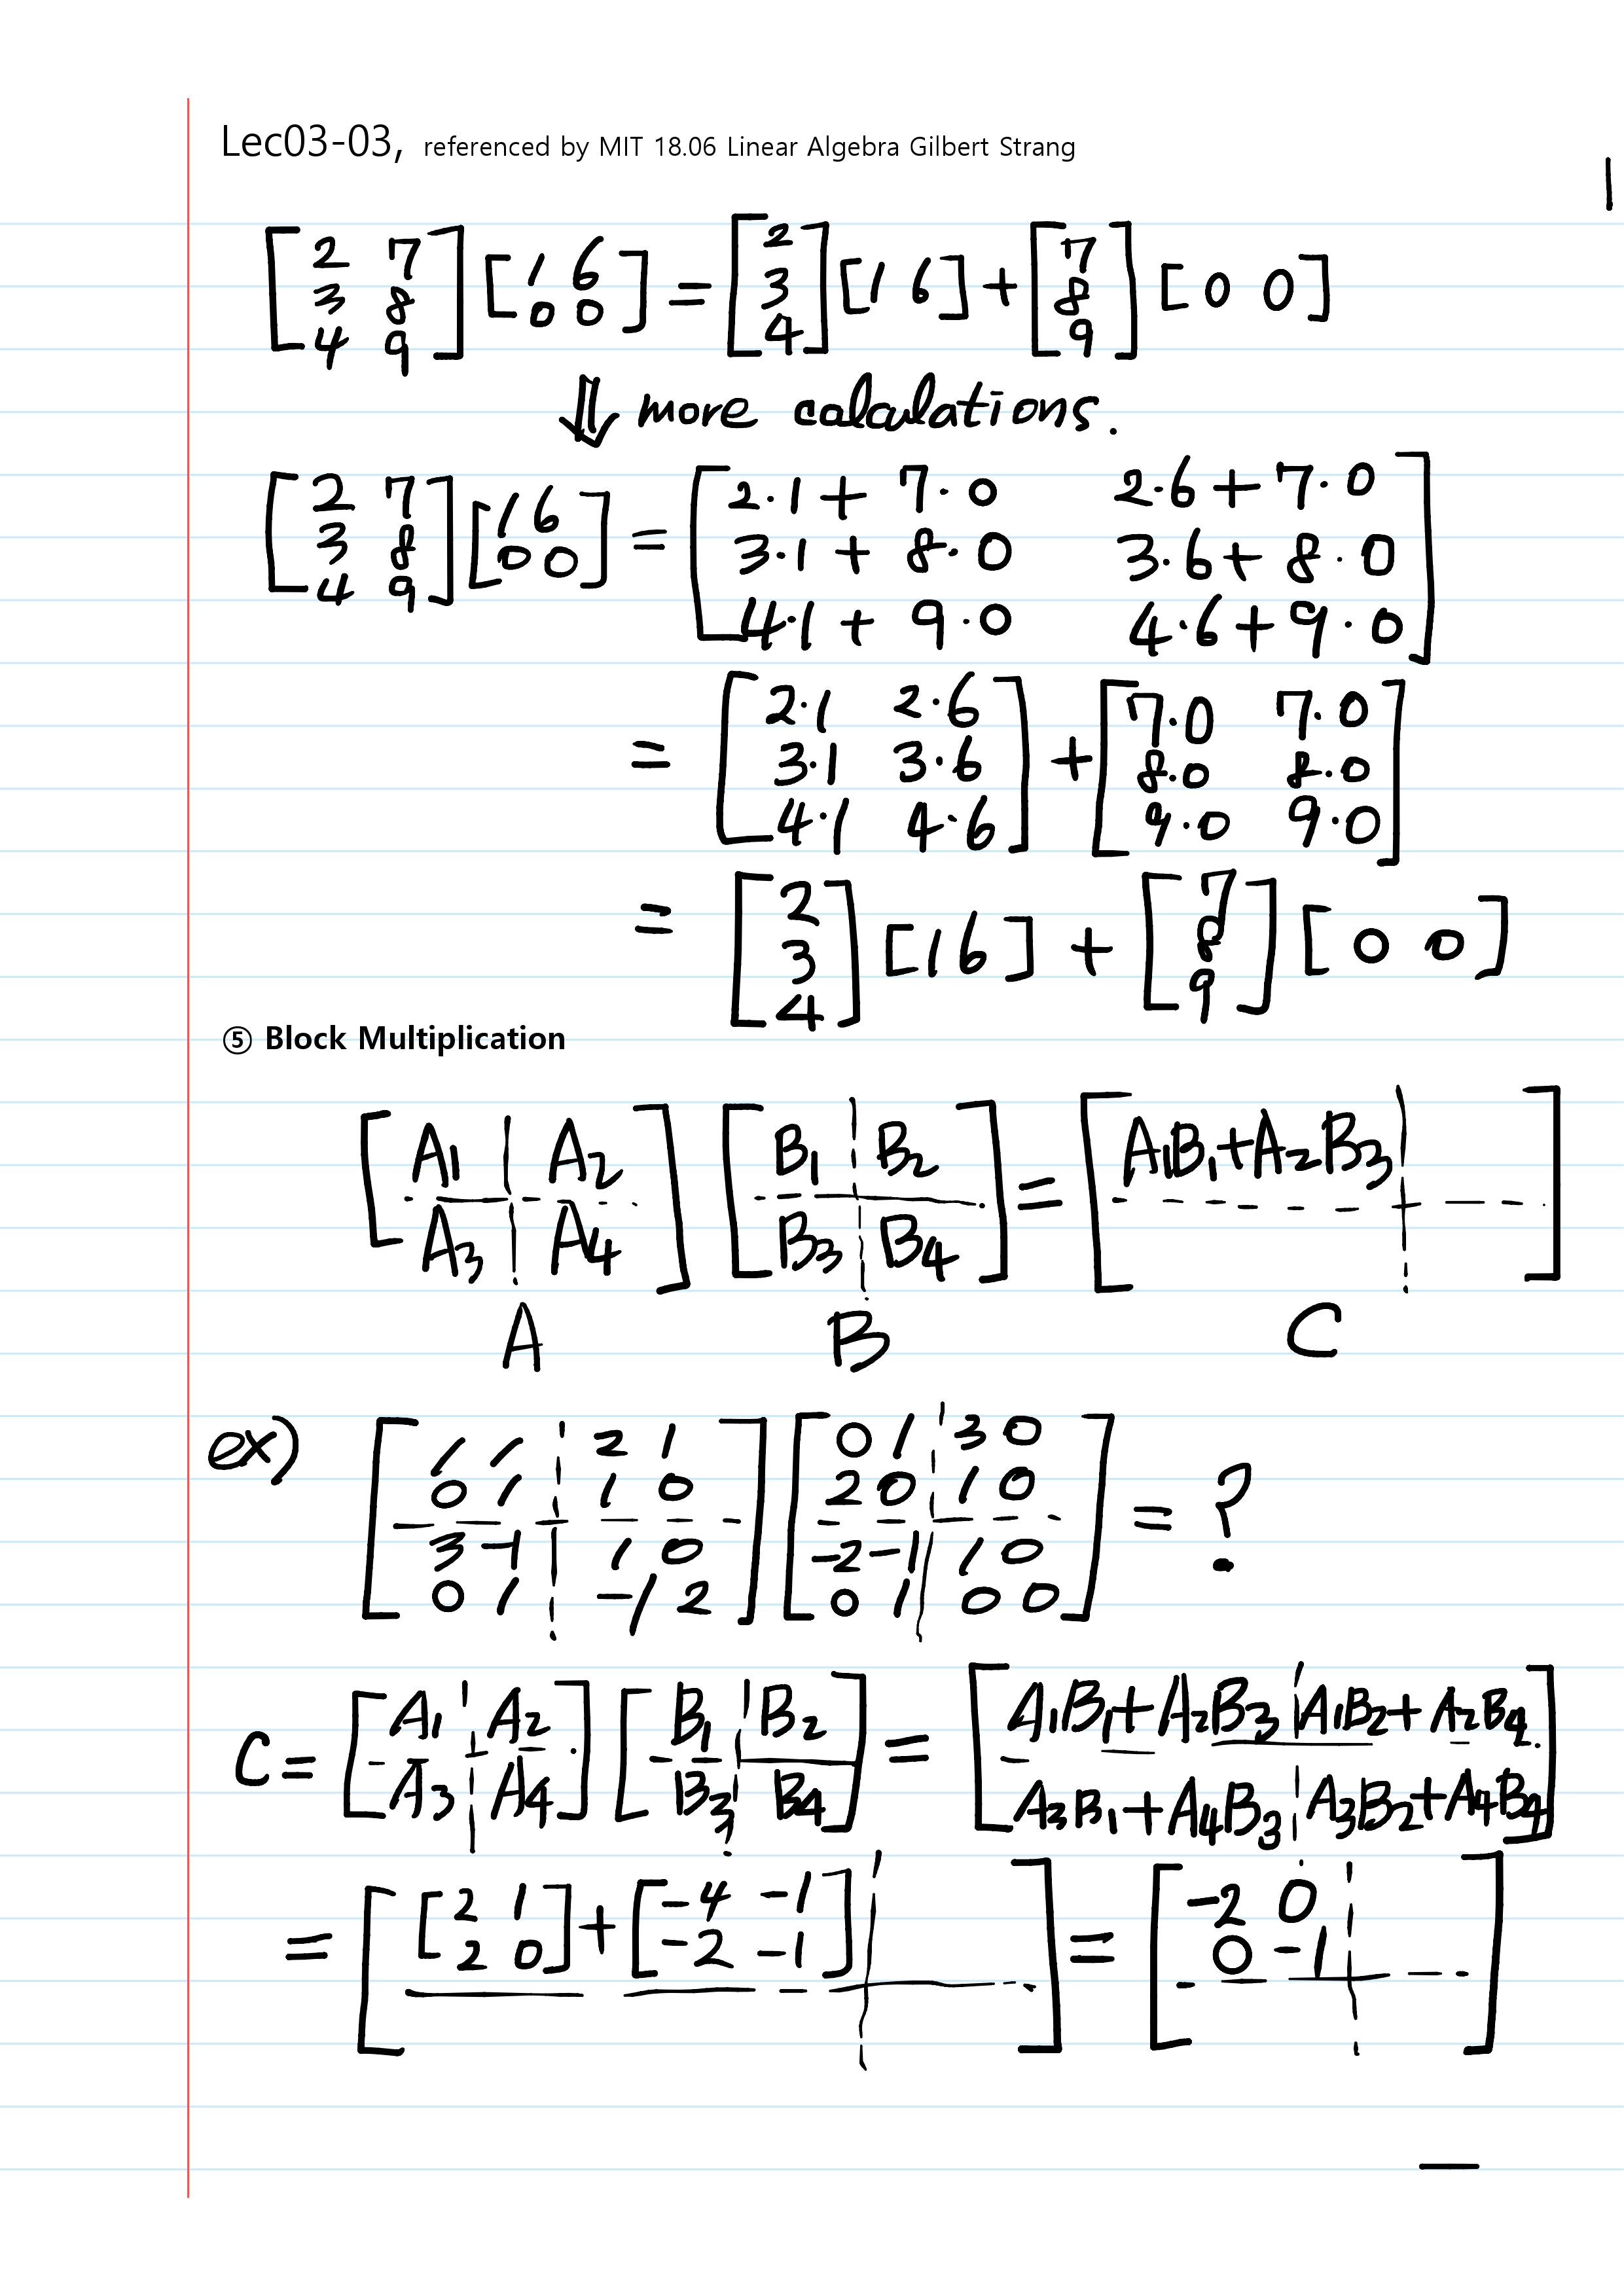 Lec03-03, referenced by MIT 18.06 Linear Algebra Gilbert Strang
[2 7; 3 8; 4 9] [1 6; 0 0] = [2; 3; 4] [1 6] + [7; 8; 9] [0 0]
⇓ more calculations.
[2 7; 3 8; 4 9] [1 6; 0 0] = [2·1 + 7·0  2·6 + 7·0; 3·1 + 8·0  3·6 + 8·0; 4·1 + 9·0  4·6 + 9·0]
= [2·1 2·6; 3·1 3·6; 4·1 4·6] + [7·0 7·0; 8·0 8·0; 9·0 9·0]
= [2; 3; 4] [1 6] + [7; 8; 9] [0 0]
⑤ Block Multiplication
[A1 A2; A3 A4] [B1 B2; B3 B4] = [A1B1+A2B3]
A B C
ex) [1 1 2 1; 0 1 1 0; 3 -1 1 0; 0 1 -1 2] [0 1 3 0; 2 0 1 0; -2 -1 1 0; 0 1 0 0] = ?
C = [A1 A2; A3 A4] [B1 B2; B3 B4] = [A1B1+A2B3  A1B2+A2B4; A3B1+A4B3  A3B2+A4B4]
= [[2 1; 2 0] + [-4 -1; -2 -1]] = [-2 0; 0 -1]